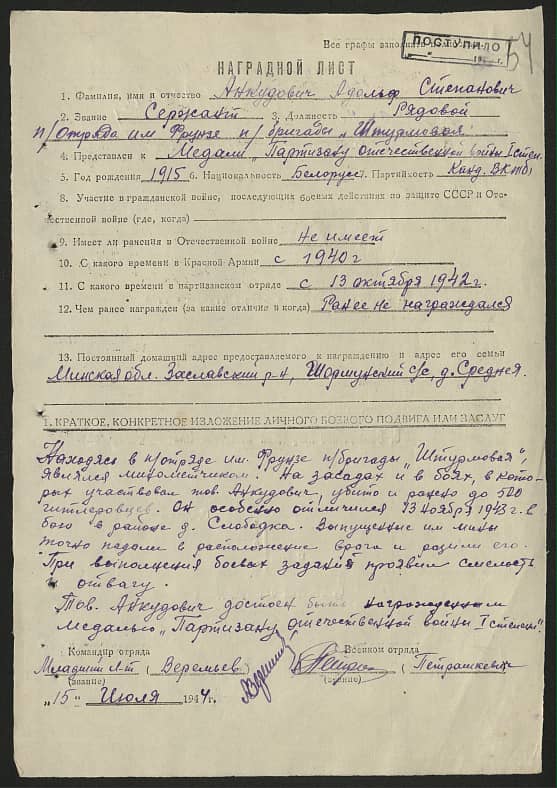 Все графы заполнять
ПОСТУПИЛО
54
НАГРАДНОЙ ЛИСТ
1. Фамилия, имя и отчество Анкудович Адольф Степанович
2. Звание Сержант 3. Должность Рядовой
п/отряда им Фрунзе п/бригады „Штурмовая"
4. Представлен к Медали „Партизану отечественной войны I степ.
5. Год рождения 1915 6. Национальность Белорус 7. Партийность Канд. ВКПб)
8. Участие в гражданской войне, последующих боевых действиях по защите СССР и Оте-
чественной войне (где, когда)
9. Имеет ли ранения в Отечественной войне Не имеет
10. С какого времени в Красной Армии с 1940г
11. С какого времени в партизанском отряде с 13 октября 1942г.
12. Чем ранее награжден (за какие отличия и когда) Ранее не награждался
13. Постоянный домашний адрес предоставляемого к награждению и адрес его семьи
Минская обл. Заславский р-н, с/с, д. Средняя.
1. КРАТКОЕ, КОНКРЕТНОЕ ИЗЛОЖЕНИЕ ЛИЧНОГО БОЕВОГО ПОДВИГА ИЛИ ЗАСЛУГ
Находясь в п/отряде им. Фрунзе п/бригады „Штурмовая",
являлся минометчиком. На засадах и в боях, в кото-
рых участвовал тов. Анкудович, убито и ранено до 500
гитлеровцев. Он особенно отличился 13 ноября 1943 г. в
бою в районе д. Слободка. Выпущенные им мины
точно падали в расположение врага и разили его.
При выполнении боевых заданий проявил смелость
и отвагу.
Тов. Анкудович достоен быть награжденным
медалью „Партизану отечественной войны I степени".
Командир отряда Военком отряда
Младший л-т (Веремьев) (Петрашкевич
(звание) (звание)
„15" Июля 1944г.